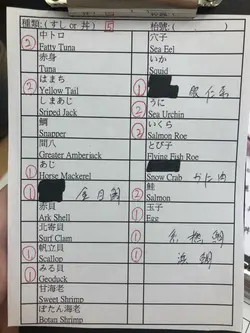 種類: (すし or 丼) 5
枱號: ( )
② 中トロ
Fatty Tuna
穴子
Sea Eel
赤身
Tuna
いか
Squid
② はまち
Yellow Tail
①
しまあじ
Sriped Jack
② うに
Sea Urchin
鯛
Snapper
② いくら
Salmon Roe
間八
Greater Amberjack
とび子
Flying Fish Roe
① あじ
Horse Mackerel
①
Snow Crab かに肉
① 金目鯛
② 鮭
Salmon
赤貝
Ark Shell
① 玉子
Egg
北寄貝
Surf Clam
①
① 帆立貝
Scallop
①
① みる貝
Geoduck
甘海老
Sweet Shrimp
ぼたん海老
Botan Shrimp